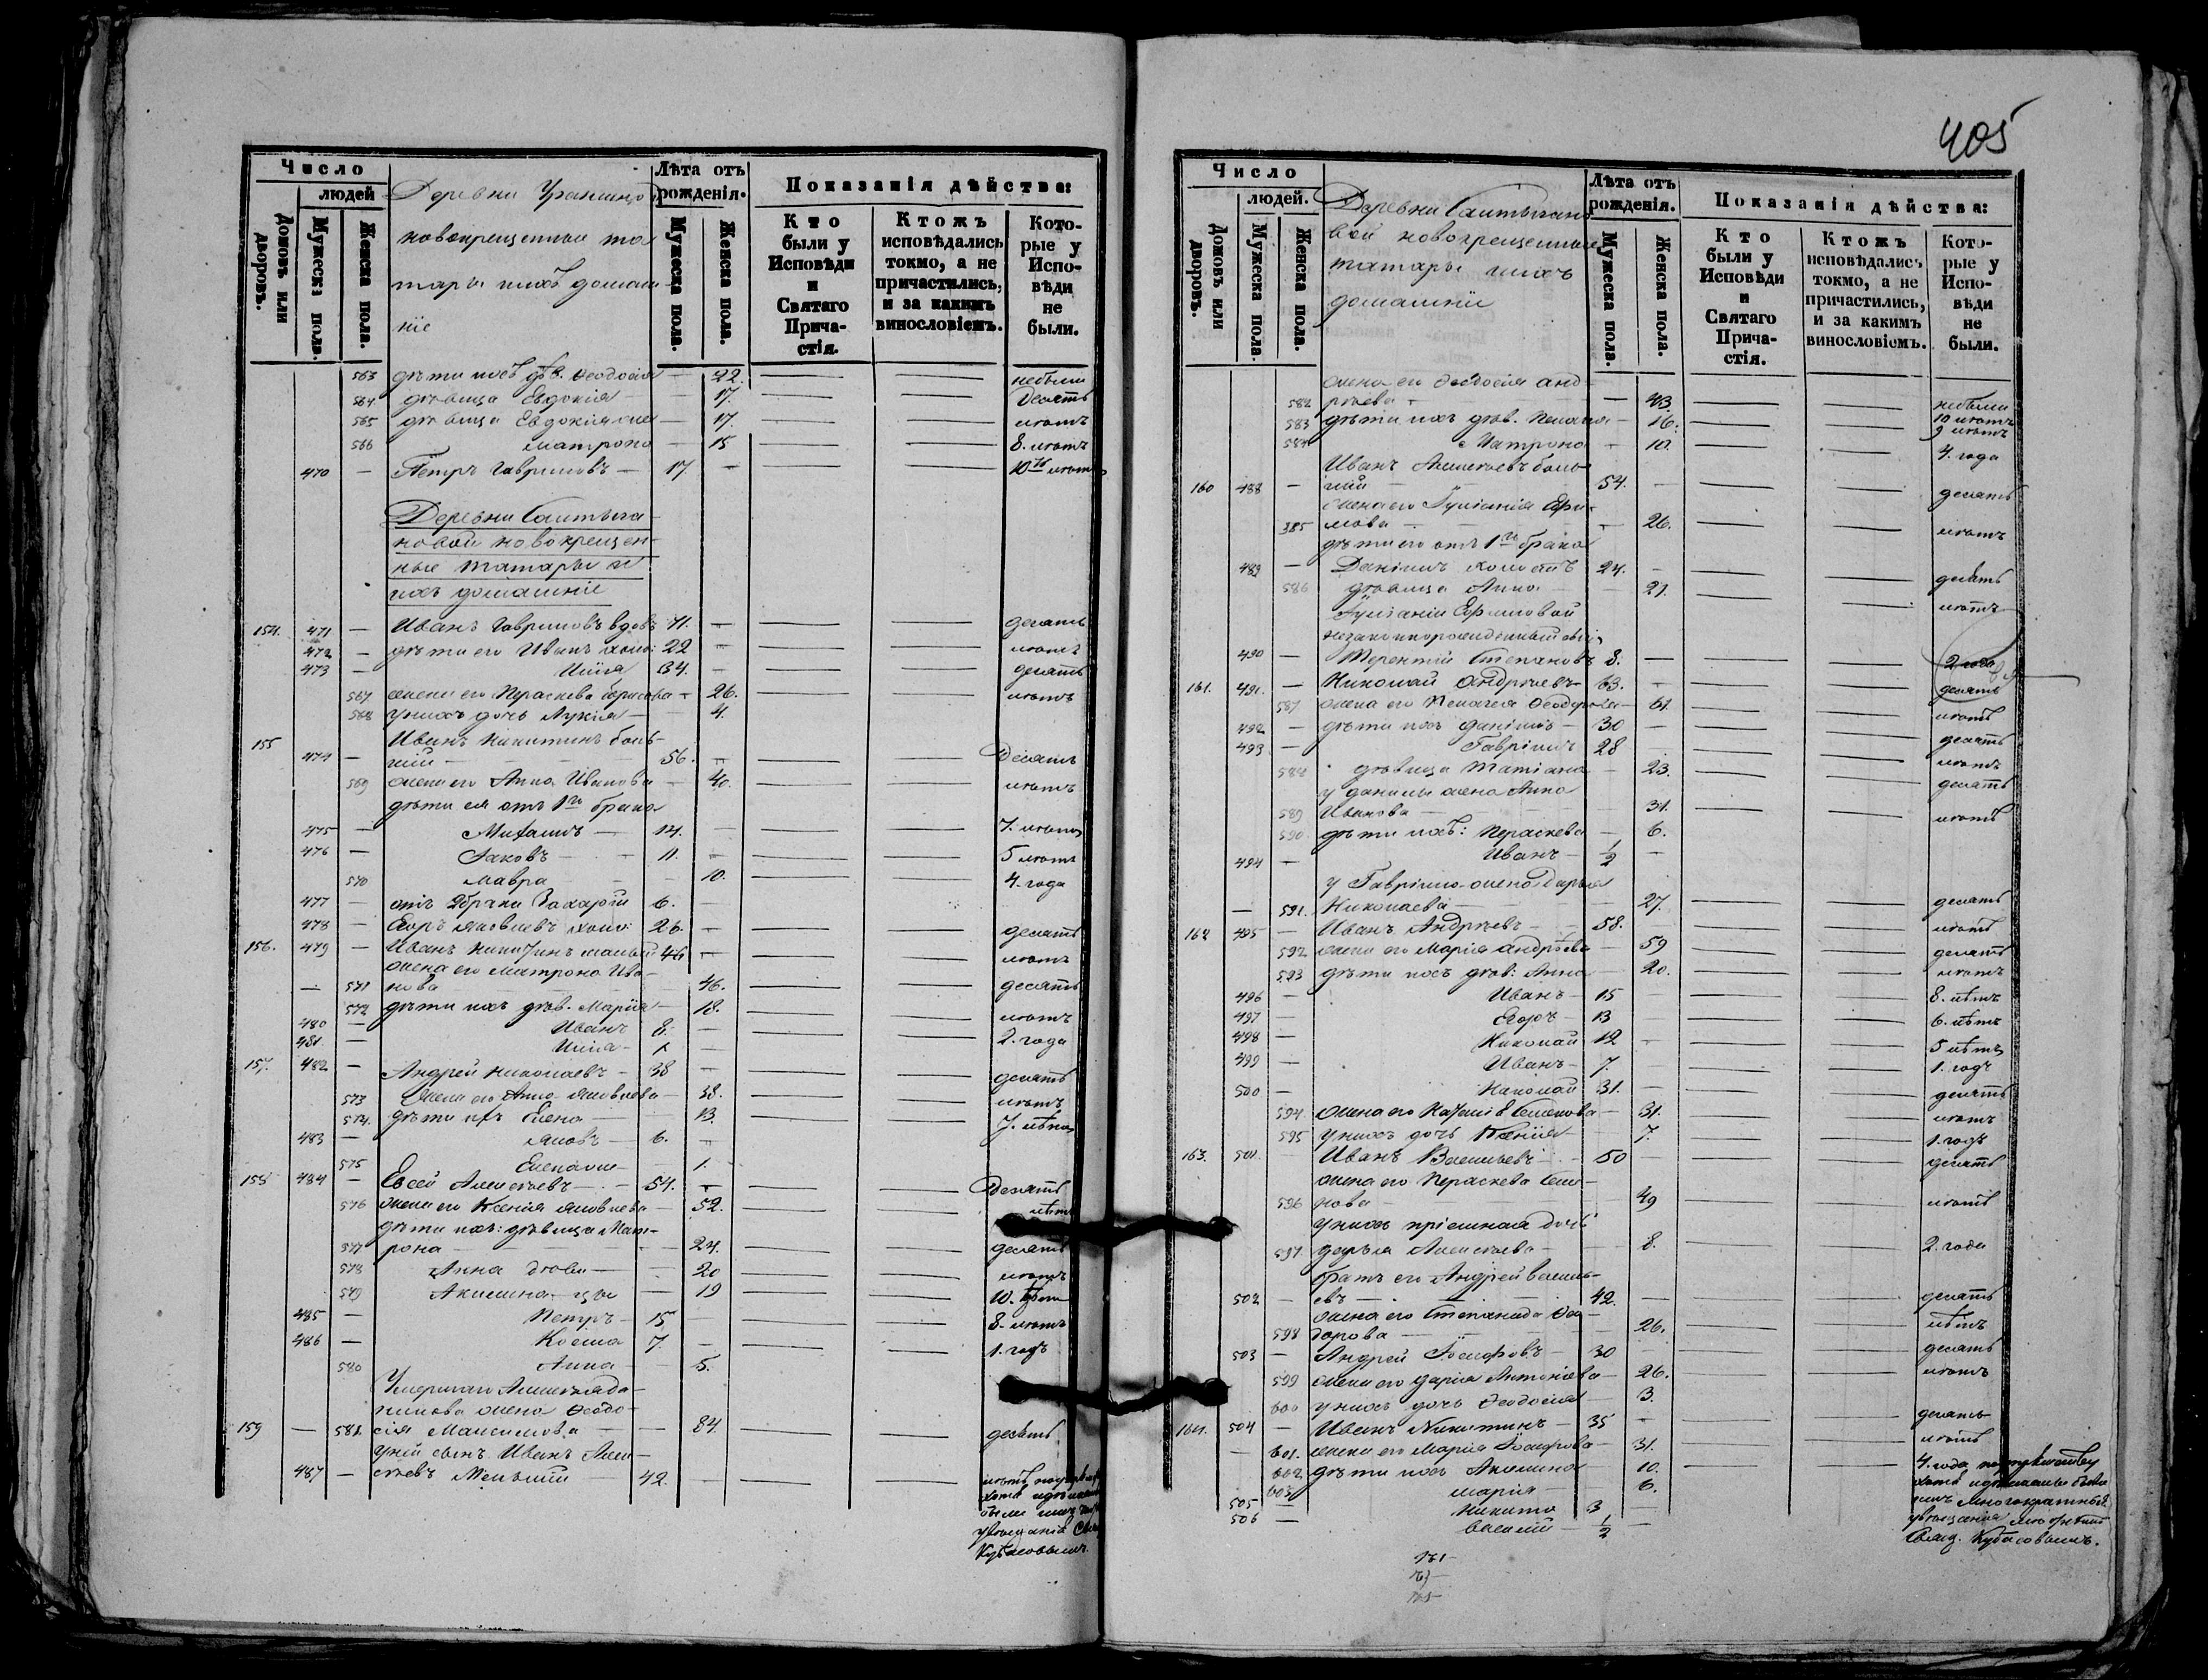 Число
людей
Домовъ или дворовъ.
Мужеска пола.
Женска пола.
Деревни
новокрещенные та
тары ихъ домаш
ніе
Лѣта отъ рожденія.
Мужеска пола.
Женска пола.
Показанія дѣйства:
Кто были у Исповѣди и Святаго Причастія.
Ктожъ исповѣдались токмо, а не причастились, и за какимъ винословіемъ.
Которые у Исповѣди не были.
563 дѣти ихъ дѣв. Ѳеодосія — 22. небыли
564 дѣвица Евдокія — 17. десять
565 дѣвица Евдокія — 17. лѣтъ
566 Матрона — 15 8. лѣтъ
470 — Петръ Гавриловъ — 17 — 10 лѣтъ
Деревни
новой новокрещен
ные татары и
ихъ домашніе
154. 471 — Иванъ Гавриловъ вдовъ 71. — десять
472 — дѣти его Иванъ холос: 22 — лѣтъ
473 — Илія 34. — десять
567 жена его Параскева — 26. лѣтъ
568 у нихъ дочь Лукія — 4.
155 Иванъ Никитинъ боль
474 — шій — 56. — десять
569 жена его Анна Иванова — 40. лѣтъ
дѣти ея отъ 1го брака
475 — Михаилъ — 14. — 7. лѣтъ
476 — Іаковъ — 11. — 5 лѣтъ
570 Мавра — 10. 4. года
477 — отъ 2 брака Захарій 6. —
478 — Егоръ Яковлевъ холос: 26. — десять
156. 479 — Иванъ Никитинъ малый 46 — лѣтъ
жена его Матрона Ива-
571 нова 46. десять
572 дѣти ихъ дѣв. Марія — 18. лѣтъ
480 — Иванъ 8. — 2. года
481. — Илія — 1 —
157. 482 — Андрей Николаевъ — 38 — десять
573 жена его Анна Яковлева — 38. лѣтъ
574. дѣти ихъ Елена — 13. 7. лѣтъ
483 — Яковъ — 6. —
575 — 1.
158 484 — Евсей Алексѣевъ — 54. — десять
576 жена его Ксенія Яковлева — 52. лѣтъ
дѣти ихъ: дѣвица Мат-
577 рона — 24. десять
578 Анна дѣви — 20 лѣтъ
579 Акилина цы — 19 10. лѣтъ
485 — Петръ — 15 — 8. лѣтъ
486 — Косма 7. — 1. годъ
580 Анна — 5.
Умершаго Алексѣя
жена Ѳеодо-
159 — 581. сія Максимова — 84. десять
у ней сынъ Иванъ Алек-
487 — сѣевъ Меньшій — 42. —
Кубасовымъ
405
Число
людей.
Домовъ или дворовъ.
Мужеска пола.
Женска пола.
Деревни
вой новокрещенные
татары ихъ
домашніе
Лѣта отъ рожденія.
Мужеска пола.
Женска пола.
Показанія дѣйства:
Кто были у Исповѣди и Святаго Причастія.
Ктожъ исповѣдались токмо, а не причастились, и за какимъ винословіемъ.
Которые у Исповѣди не были.
жена его Ѳеодосія Анд
582 рѣева — 43. небыли
583 дѣти ихъ дѣв. Пелагія — 16. 10 лѣтъ
9 лѣтъ
584 Матрона — 10. 4. года
Иванъ Алексѣевъ боль
160 488 — шій — 54. — десять
жена его Іуліанія Ефи-
585 мова — 26. лѣтъ
дѣти его отъ 1го брака
489 — Даніилъ холостъ 24. — десять
586 дѣвица Анна 21. лѣтъ
Іуліаніи Ефимовой
незаконнорожденный
490 — Терентій Степановъ 8. — 2 года
161. 491. — Николай Андрѣевъ 63. — десять
587 жена его Пелагея — 61. лѣтъ
492 — дѣти ихъ Даніилъ — 30 — десять
493 — Гавріилъ 28 лѣтъ
588 дѣвица Татіана — 23. десять
у Данилы жена Анна
589 Иванова — 31. лѣтъ
590 дѣти ихъ: Параскева — 6.
494 — Иванъ — ½ —
у Гавріила жена Дарья
— 591. Николаева — 27. десять
162 495 — Иванъ Андрѣевъ — 58. — лѣтъ
592 жена его Марія Андрѣева — 59 десять
593 дѣти ихъ дѣв: Анна — 20. лѣтъ
496 — Иванъ — 15 — 8. лѣтъ
497 — Егоръ — 13 6. лѣтъ
498 — Николай 12 — 5 лѣтъ
499 — Иванъ — 7. 1. годъ
500 — Николай 31. — десять
594 жена его Семенова — 31. лѣтъ
595 у нихъ дочь Ксенія — 7. 1. годъ
163. 501. — Иванъ Васильевъ — 50 — десять
жена его Параскева Семе-
596 нова — 49 лѣтъ
у нихъ пріемная дочь
597 Дарья Алексѣева — 8. 2. года
братъ его Андрей Василь-
502 — евъ — 42. — десять
жена его Степанида Ѳео-
598 дорова — 26. лѣтъ
503 — Андрей Іосифовъ — 30 — десять
599 жена его Дарія Антоніева — 26. лѣтъ
600 у нихъ дочь Ѳеодосія — 3.
164. 504 — Иванъ Никитинъ — 35 — десять
— 601. жена его Марія Іосифова — 31. лѣтъ
602. дѣти ихъ Акилина — 10. 4. года
603. Марія — 6.
505 — Никита 3 —
506 — Василій — ½ —
Свящ. Кубасовымъ.